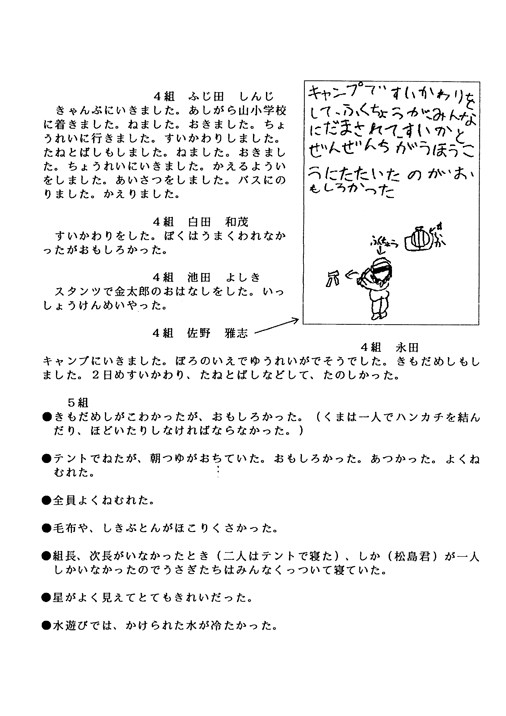 ４組　ふじ田　しんじ
きゃんぷにいきました。あしがら山小学校
に着きました。ねました。おきました。ちょ
うれいに行きました。すいかわりしました。
たねとばしもしました。ねました。おきまし
た。ちょうれいにいきました。かえるようい
をしました。あいさつをしました。バスにの
りました。かえりました。
４組　白田　和茂
すいかわりをした。ぼくはうまくわれなか
ったがおもしろかった。
４組　池田　よしき
スタンツで金太郎のおはなしをした。いっ
しょうけんめいやった。
４組　佐野　雅志
キャンプですいかわりを
して、ふくちょうがみんな
にだまされてすいかと
ぜんぜんちがうほうこ
うにたたいたのがお
もしろかった
ふくちょう
すいか
４組　永田
キャンプにいきました。ぼろのいえでゆうれいがでそうでした。きもだめしもし
ました。２日めすいかわり、たねとばしなどして、たのしかった。
５組
●きもだめしがこわかったが、おもしろかった。（くまは一人でハンカチを結ん
だり、ほどいたりしなければならなかった。）
●テントでねたが、朝つゆがおちていた。おもしろかった。あつかった。よくね
むれた。
●全員よくねむれた。
●毛布や、しきぶとんがほこりくさかった。
●組長、次長がいなかったとき（二人はテントで寝た）、しか（松島君）が一人
しかいなかったのでうさぎたちはみんなくっついて寝ていた。
●星がよく見えてとてもきれいだった。
●水遊びでは、かけられた水が冷たかった。